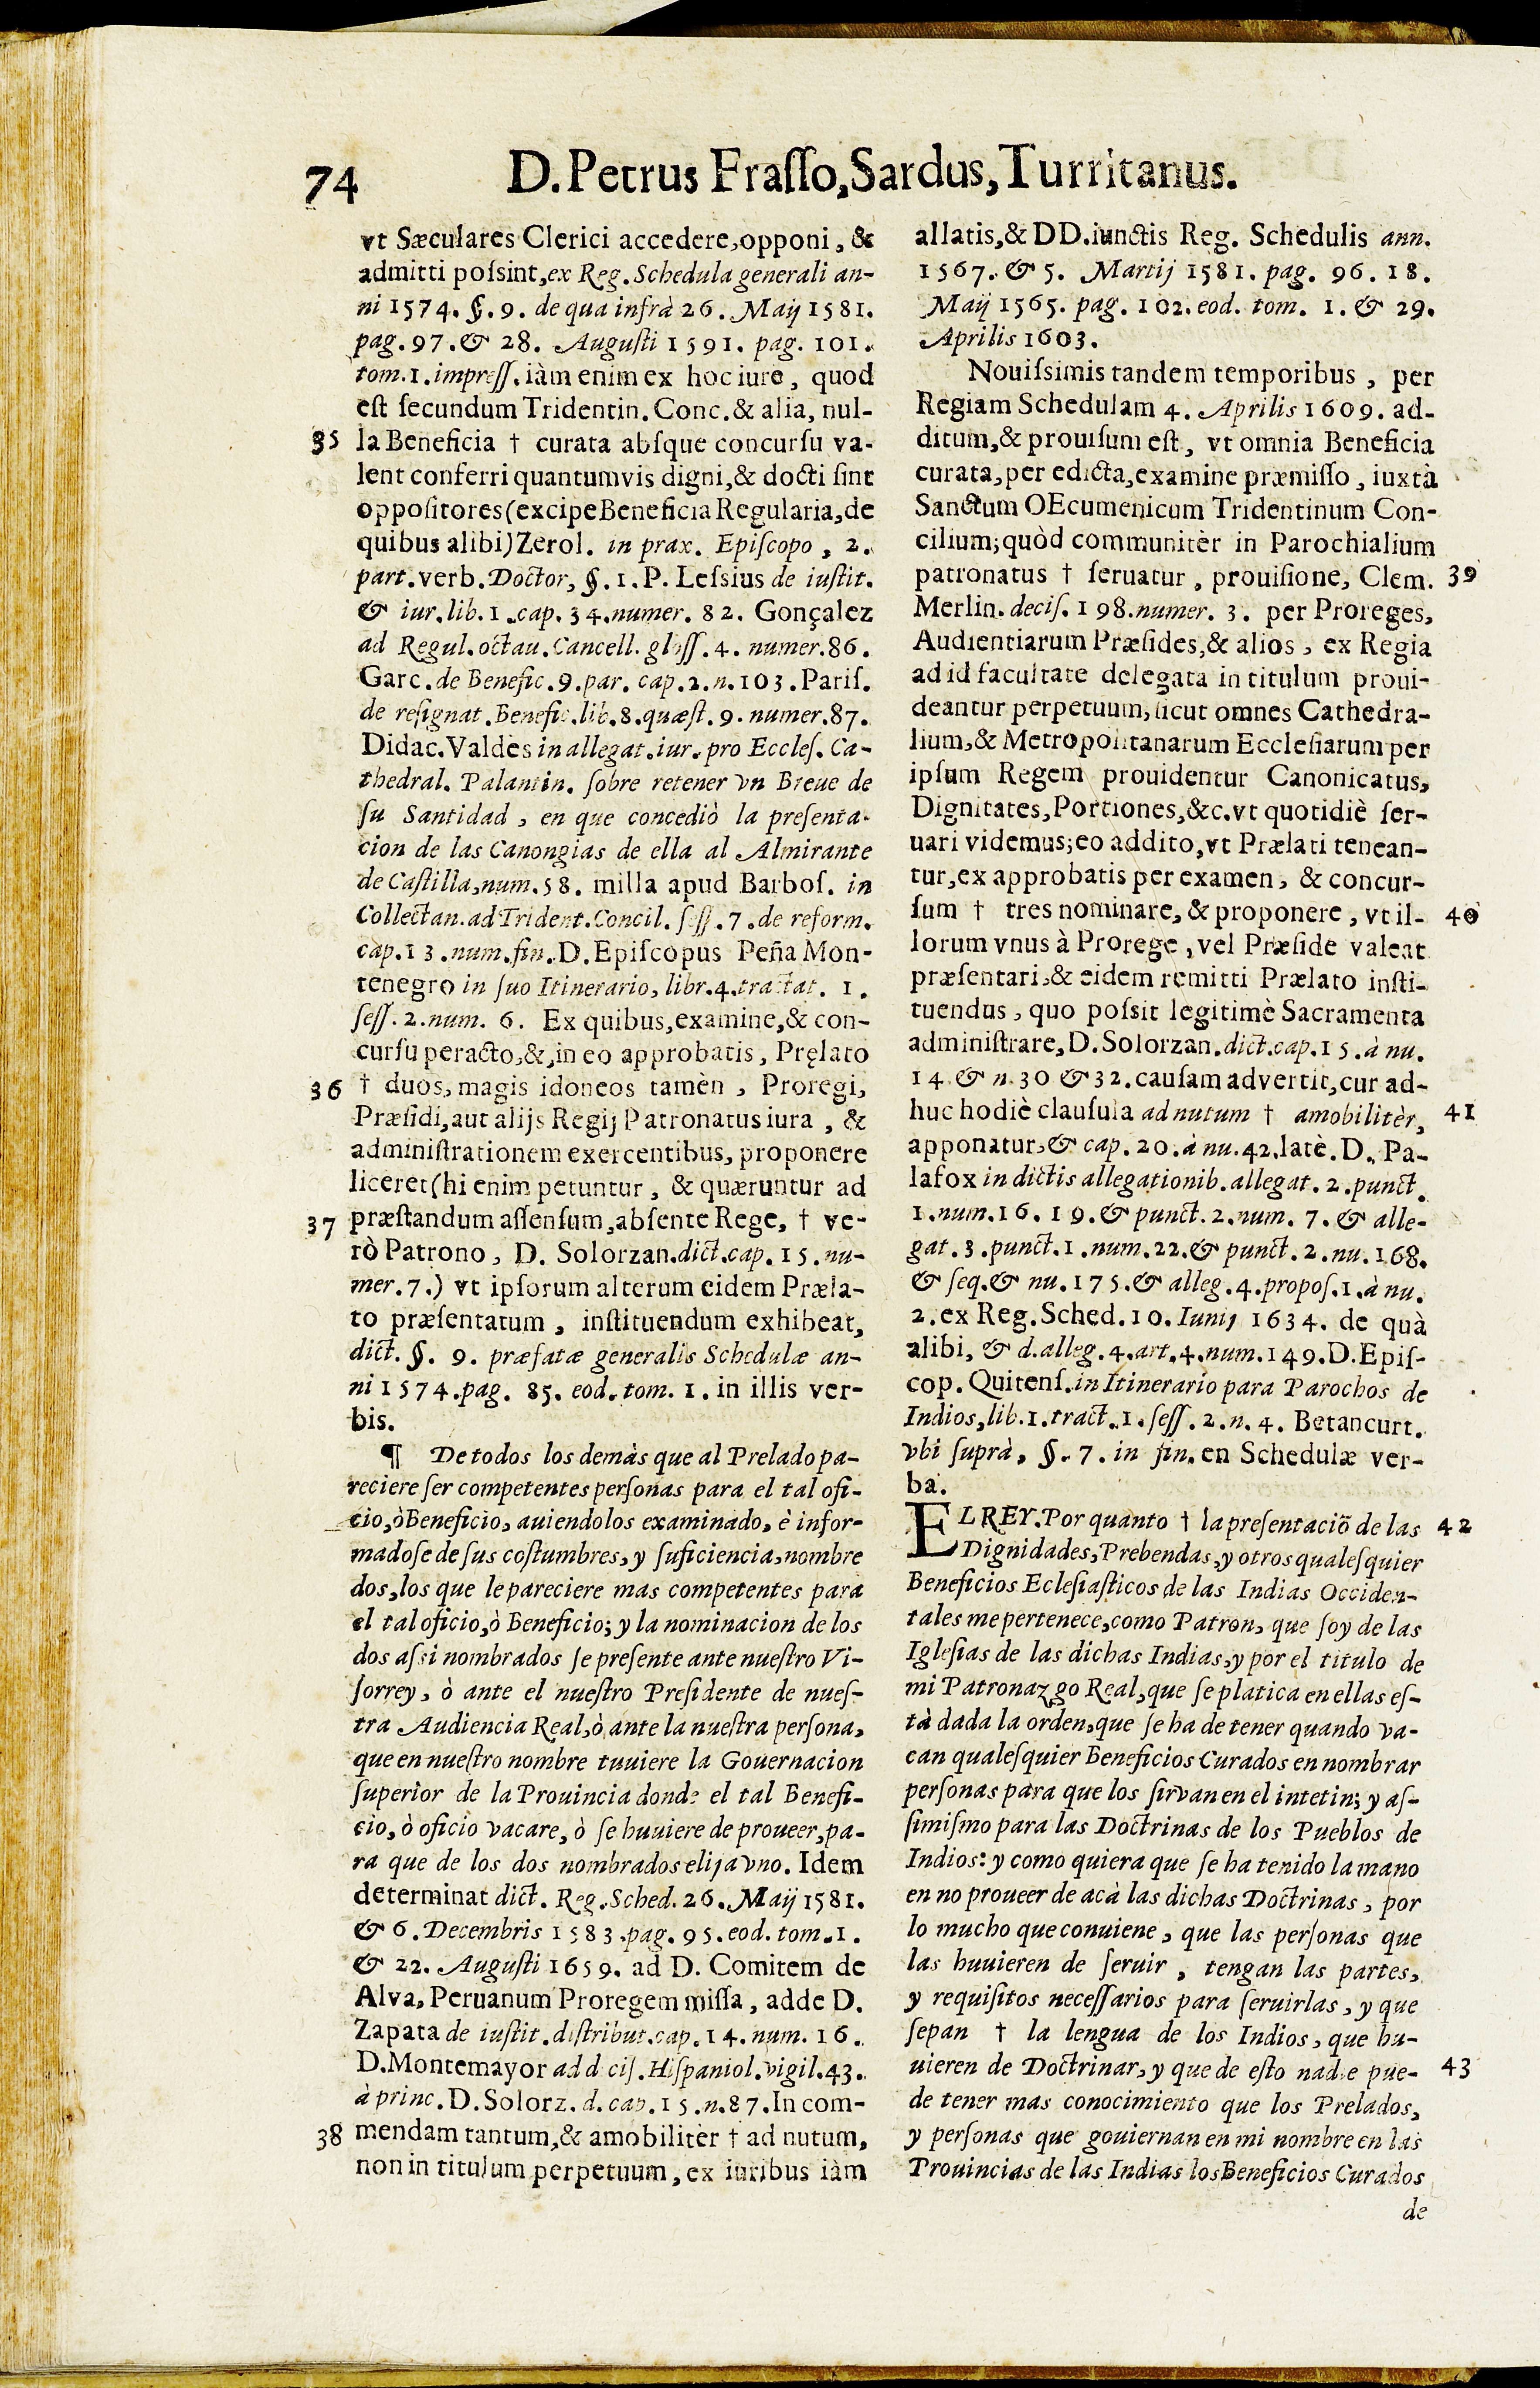 74
D. Petrus Frasso, Sardus, Turritanus.
vt Sæculares Clerici accedere, opponi, &
admitti possint, ex Reg. Schedula generali an-
ni 1574. §. 9. de qua infrà 26. Maij 1581.
pag. 97. & 28. Augusti 1591. pag. 101.
tom. 1. impress. iàm enim ex hoc iure, quod
est secundum Tridentin. Conc. & alia, nul-
35 la Beneficia † curata absque concursu va-
lent conferri quantumvis digni, & docti sint
oppositores (excipe Beneficia Regularia, de
quibus alibi) Zerol. in prax. Episcopo, 2.
part. verb. Doctor, §. 1. P. Lessius de iustit.
& iur. lib. 1. cap. 34. numer. 82. Gonçalez
ad Regul. octau. Cancell. gloss. 4. numer. 86.
Garc. de Benefic. 9. par. cap. 2. n. 103. Paris.
de resignat. Benefic. lib. 8. quæst. 9. numer. 87.
Didac. Valdès in allegat. iur. pro Eccles. Ca-
thedral. Palantin. sobre retener vn Breue de
su Santidad, en que concediò la presenta-
cion de las Canongias de ella al Almirante
de Castilla, num. 58. milla apud Barbos. in
Collectan. ad Trident. Concil. sess. 7. de reform.
cap. 13. num. fin. D. Episcopus Peña Mon-
tenegro in suo Itinerario, libr. 4. tractat. 1.
sess. 2. num. 6. Ex quibus, examine, & con-
cursu peracto, &, in eo approbatis, Pręlato
36 † duos, magis idoneos tamèn, Proregi,
Præsidi, aut alijs Regij Patronatus iura, &
administrationem exercentibus, proponere
liceret (hi enim petuntur, & quæruntur ad
37 præstandum assensum, absente Rege, † ve-
rò Patrono, D. Solorzan. dict. cap. 15. nu-
mer. 7.) vt ipsorum alterum eidem Præla-
to præsentatum, instituendum exhibeat,
dict. §. 9. præfatæ generalis Schedulæ an-
ni 1574. pag. 85. eod. tom. 1. in illis ver-
bis.
¶ De todos los demàs que al Prelado pa-
reciere ser competentes personas para el tal ofi-
cio, ò Beneficio, auiendolos examinado, è infor-
madose de sus costumbres, y suficiencia, nombre
dos, los que le pareciere mas competentes para
el tal oficio, ò Beneficio; y la nominacion de los
dos assi nombrados se presente ante nuestro Vi-
sorrey, ò ante el nuestro Presidente de nues-
tra Audiencia Real, ò ante la nuestra persona,
que en nuestro nombre tuuiere la Gouernacion
superior de la Prouincia donde el tal Benefi-
cio, ò oficio vacare, ò se huuiere de proueer, pa-
ra que de los dos nombrados elija vno. Idem
determinat dict. Reg. Sched. 26. Maij 1581.
& 6. Decembris 1583. pag. 95. eod. tom. 1.
& 22. Augusti 1659. ad D. Comitem de
Alva, Peruanum Proregem missa, adde D.
Zapata de iustit. distribut. cap. 14. num. 16.
D. Montemayor ad decis. Hispaniol. vigil. 43.
à princ. D. Solorz. d. cap. 15. n. 87. In com-
38 mendam tantum, & amobilitèr † ad nutum,
non in titulum perpetuum, ex iuribus iàm
allatis, & DD. iunctis Reg. Schedulis ann.
1567. & 5. Martij 1581. pag. 96. 18.
Maij 1565. pag. 102. eod. tom. 1. & 29.
Aprilis 1603.
Nouissimis tandem temporibus, per
Regiam Schedulam 4. Aprilis 1609. ad-
ditum, & prouisum est, vt omnia Beneficia
curata, per edicta, examine præmisso, iuxtà
Sanctum OEcumenicum Tridentinum Con-
cilium; quòd communitèr in Parochialium
patronatus † seruatur, prouisione, Clem. 39
Merlin. decis. 198. numer. 3. per Proreges,
Audientiarum Præsides, & alios, ex Regia
ad id facultate delegata in titulum proui-
deantur perpetuum, sicut omnes Cathedra-
lium, & Metropolitanarum Ecclesiarum per
ipsum Regem prouidentur Canonicatus,
Dignitates, Portiones, &c. vt quotidiè ser-
uari videmus; eo addito, vt Prælati tenean-
tur, ex approbatis per examen, & concur-
sum † tres nominare, & proponere, vt il- 40
lorum vnus à Prorege, vel Præside valeat
præsentari, & eidem remitti Prælato insti-
tuendus, quo possit legitimè Sacramenta
administrare, D. Solorzan. dict. cap. 15. à nu.
14. & n. 30 & 32. causam advertit, cur ad-
huc hodiè clausula ad nutum † amobilitèr, 41
apponatur, & cap. 20. à nu. 42. latè. D. Pa-
lafox in dictis allegationib. allegat. 2. punct.
1. num. 16. 19. & punct. 2. num. 7. & alle-
gat. 3. punct. 1. num. 22. & punct. 2. nu. 168.
& seq. & nu. 175. & alleg. 4. propos. 1. à nu.
2. ex Reg. Sched. 10. Iunij 1634. de quà
alibi, & d. alleg. 4. art. 4. num. 149. D. Epis-
cop. Quitens. in Itinerario para Parochos de
Indios, lib. 1. tract. 1. sess. 2. n. 4. Betancurt.
vbi suprà, §. 7. in fin. en Schedulæ ver-
ba.
EL REY. Por quanto † la presentaciõ de las 42
Dignidades, Prebendas, y otros qualesquier
Beneficios Eclesiasticos de las Indias Occiden-
tales me pertenece, como Patron, que soy de las
Iglesias de las dichas Indias, y por el titulo de
mi Patronazgo Real, que se platica en ellas es-
tà dada la orden, que se ha de tener quando va-
can qualesquier Beneficios Curados en nombrar
personas para que los sirvan en el intetin; y as-
simismo para las Doctrinas de los Pueblos de
Indios: y como quiera que se ha tenido la mano
en no proueer de acà las dichas Doctrinas, por
lo mucho que conuiene, que las personas que
las huuieren de seruir, tengan las partes,
y requisitos necessarios para seruirlas, y que
sepan † la lengua de los Indios, que hu-
uieren de Doctrinar, y que de esto nadie pue- 43
de tener mas conocimiento que los Prelados,
y personas que gouiernan en mi nombre en las
Prouincias de las Indias los Beneficios Curados
de